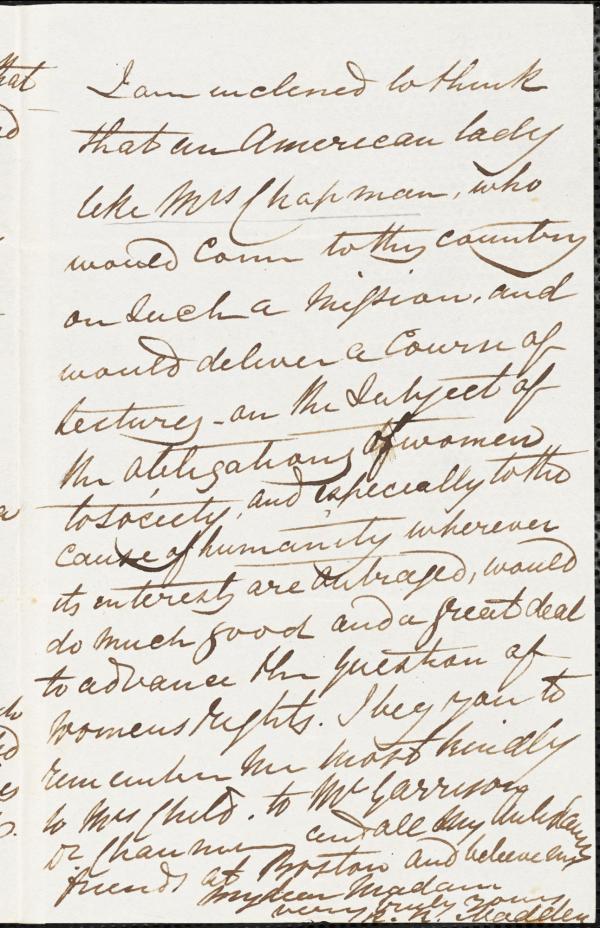 I am inclined to think
that an American lady
like Mrs Chapman, who
would come to this country
on such a mission, and
would deliver a course of
lectures - on the subject of
the obligations of women
to society, and especially to the
cause of humanity wherever
its interests are outraged, would
do much good and a great deal
to advance the question of
womens rights. I beg you to
remember me most kindly
to Mrs Child. to Mr Garrison
Dr Channing and all my
friends at Boston and believe me
my dear Madam
very truly yours
R. R. Madden